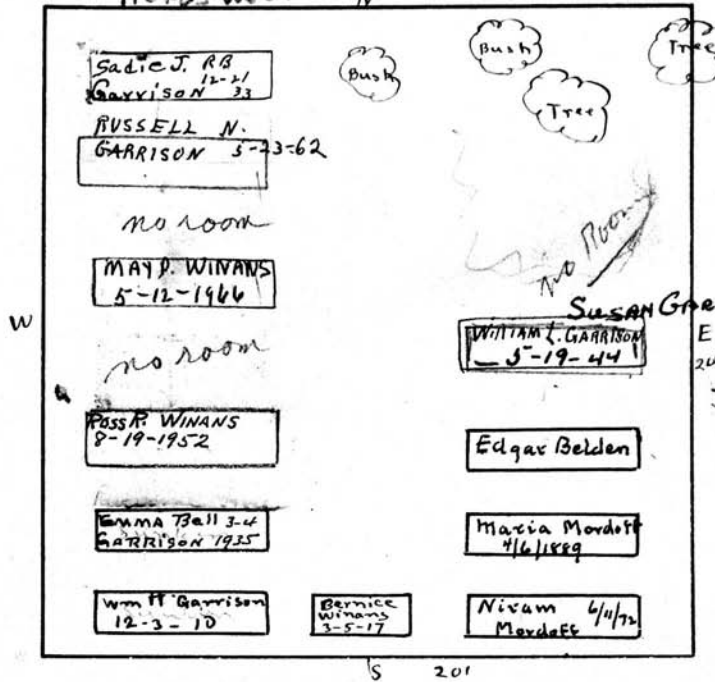 N
Sadie J. RB
12-21
Garrison 33
Bush
Bush
Tree
Tree
RUSSELL N.
GARRISON 5-23-62
no room
no Room
MAY P. WINANS
5-12-1966
W
SUSAN GAR
WILLIAM L. GARRISON
5-19-44
E
no room
ROSS R. WINANS
8-19-1952
Edgar Belden
EMMA Bell 3-4
GARRISON 1935
Maria Mordoff
4/6/1889
Wm H Garrison
12-3-10
Bernice
Winans
3-5-17
Niram 6/11/72
Mordoff
S 201